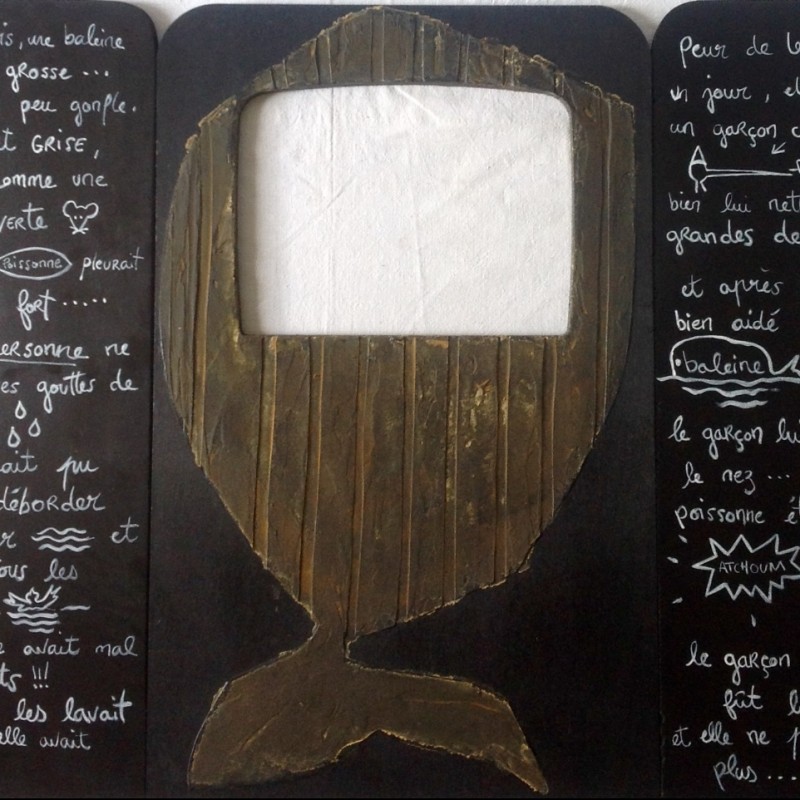 is, une baleine
grosse ...
peu gonflé.
t GRISE,
omme une
verte
Poissonne pleurait
fort .....
ersonne ne
es gouttes de
ait pu
déborder
r et
ous les
e avait mal
ts !!!
les lavait
elle avait
peur de l
un jour, el
un garçon c
bien lui nett
grandes de
et après
bien aidé
baleine
le garçon lui
le nez ...
poissonne ét
ATCHOUM
le garçon
fût l
et elle ne p
plus ....